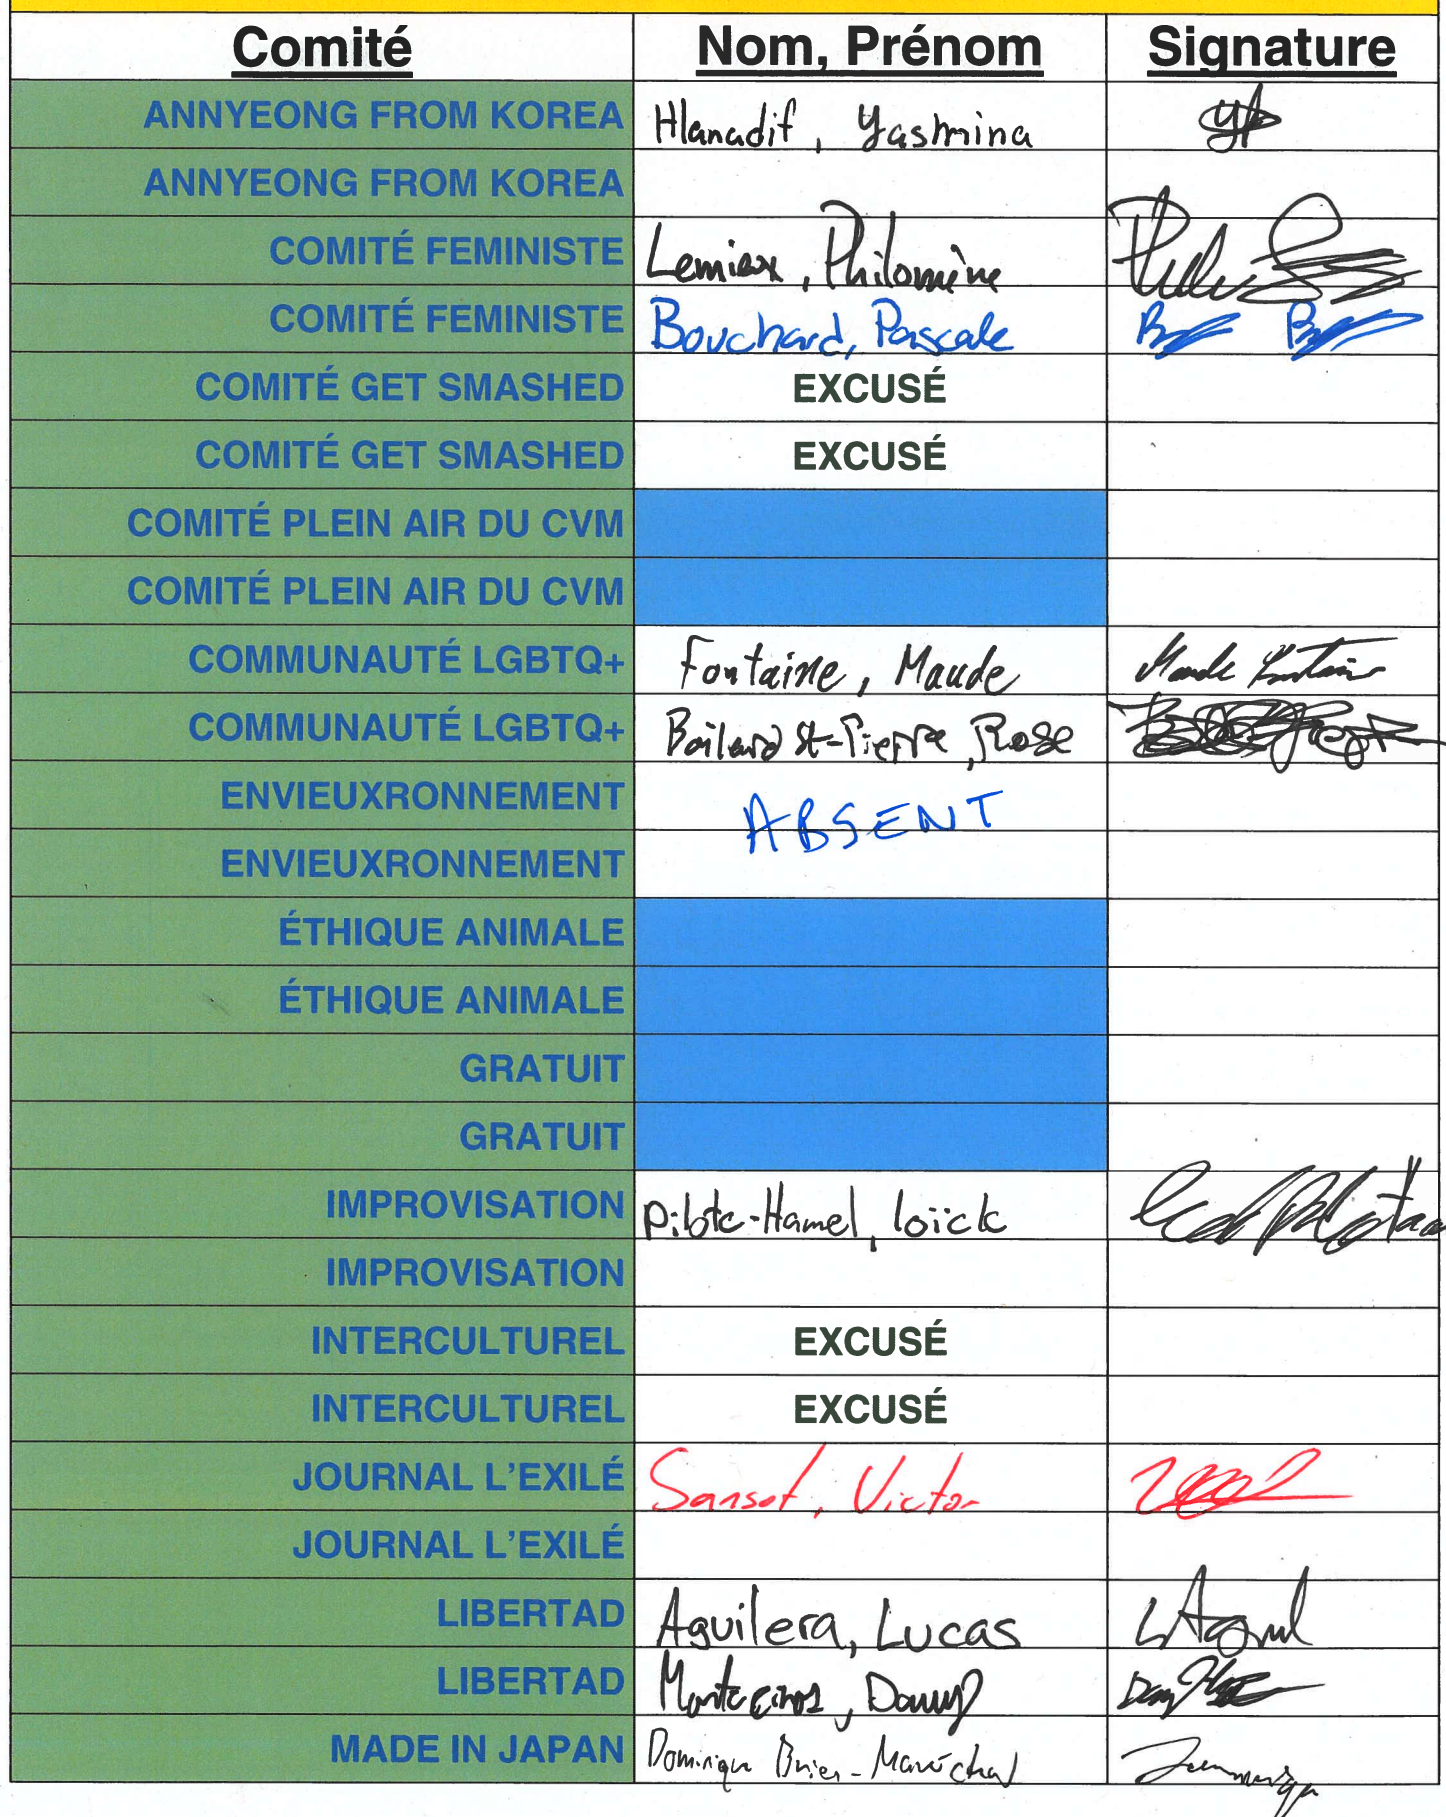 Comité Nom, Prénom Signature
ANNYEONG FROM KOREA Hlanadif, Yasmina
ANNYEONG FROM KOREA
COMITÉ FEMINISTE Lemieux, Philomène
COMITÉ FEMINISTE Bouchard, Pascale
COMITÉ GET SMASHED EXCUSÉ
COMITÉ GET SMASHED EXCUSÉ
COMITÉ PLEIN AIR DU CVM
COMITÉ PLEIN AIR DU CVM
COMMUNAUTÉ LGBTQ+ Fontaine, Maude
COMMUNAUTÉ LGBTQ+ St-Pierre, Rose
ENVIEUXRONNEMENT ABSENT
ENVIEUXRONNEMENT
ÉTHIQUE ANIMALE
ÉTHIQUE ANIMALE
GRATUIT
GRATUIT
IMPROVISATION Pilote-Hamel, loïck
IMPROVISATION
INTERCULTUREL EXCUSÉ
INTERCULTUREL EXCUSÉ
JOURNAL L'EXILÉ Sansot, Victor
JOURNAL L'EXILÉ
LIBERTAD Aguilera, Lucas
LIBERTAD Montecinos, Danny
MADE IN JAPAN Dominique Brien-Maréchal